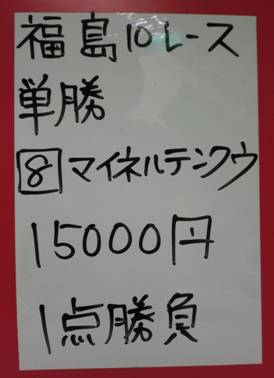 福島10レース
単勝
8マイネルテンクウ
15000円
1点勝負